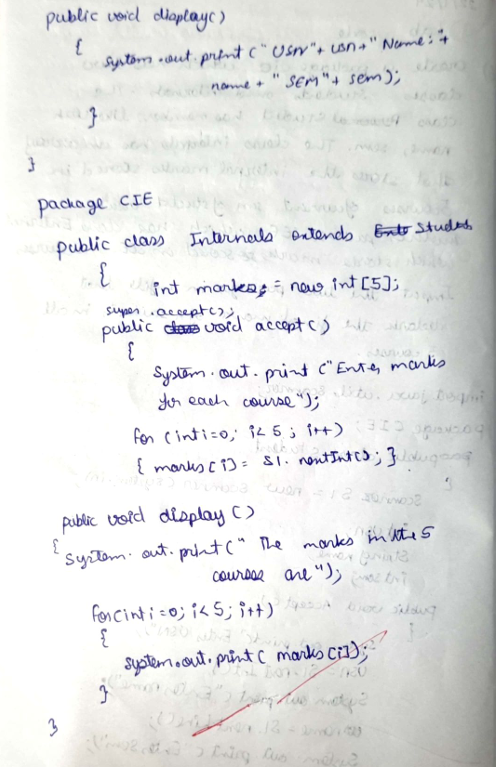 public void display()
{
System.out.print("USN"+ usn+" Name:"+
name+ " SEM"+ sem);
}
}
package CIE
public class Internals extends Student
{
int marks[] = new int[5];
super.accept();
public void accept()
{
System.out.print("Enter marks
for each course");
for (int i=0; i<5; i++)
{ marks[i] = S1.nextInt(); }
public void display()
{
System.out.print(" The marks in the 5
courses are");
for(int i=0; i<5; i++)
{
System.out.print( marks[i]);
}
}